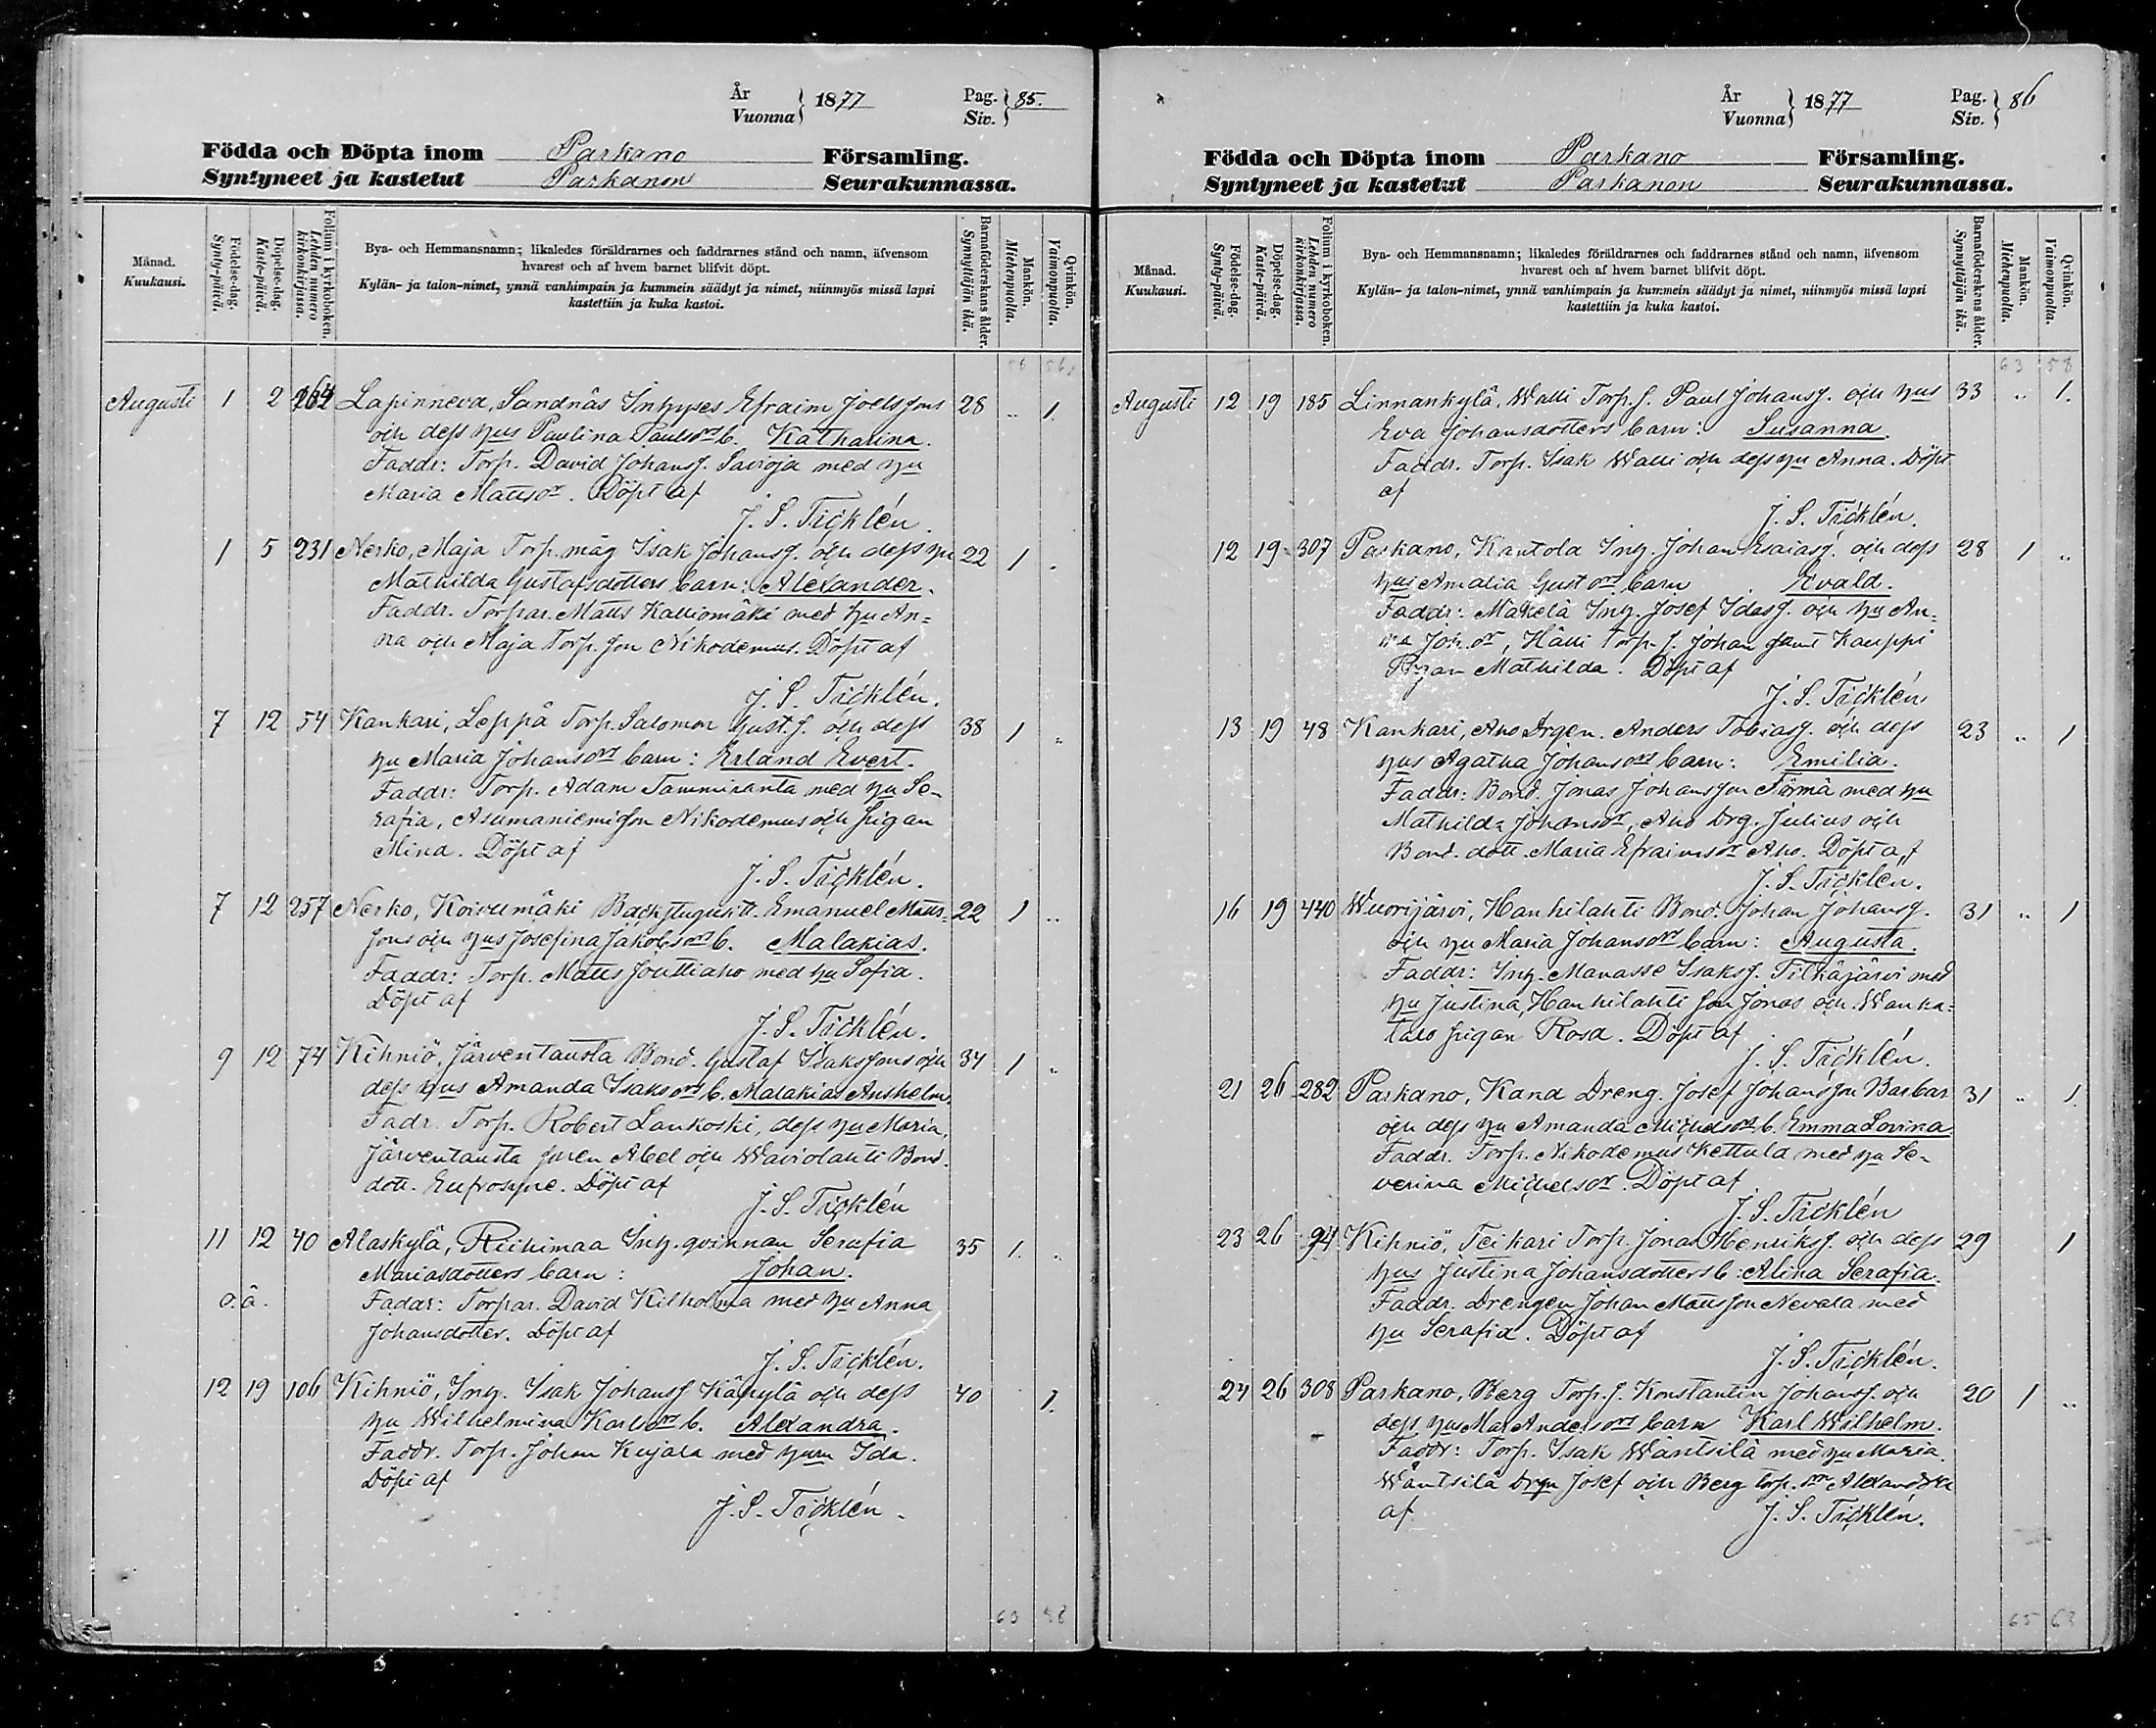 År
Vuonna } 1877 Pag. Siv. } 85.
Födda och Döpta inom Parkano Församling.
Syntyneet ja kastetut Parkanon Seurakunnassa.
Månad. Kuukausi.
Födelse-dag. Synty-päivä.
Döpelse-dag. Kaste-päivä.
Folium i kyrkoboken. Lehden numero kirkonkirjassa.
Bya- och Hemmansnamn; likaledes föräldrarnes och faddrarnes stånd och namn, äfvensom
hvarest och af hvem barnet blifvit döpt.
Kylän- ja talon-nimet, ynnä vanhimpain ja kummein säädyt ja nimet, niinmyös missä lapsi
kastettiin ja kuka kastoi.
Barnaföderskans ålder. Synnyttäjän ikä.
Mankön. Miehenpuolta.
Qvinkön. Vaimonpuolta.
Augusti 1 2 Lapinneva, Sandnäs Inhyses Efraim Joelssons 28 „ 1.
och dess hus Paulina Paulsdr b. Katharina.
Faddr: Torp. David Johanss. Savioja med hu
Maria Mattsdr. Döpt af
J. S. Ticklén.
1 5 231 Nerko, Maja Torp. måg Isak Johanss. och dess hu 22 1 „
Mathilda Gustafsdotters barn: Alexander.
Faddr. Torpar. Matts Kalliomäki med hu An=
na och Maja Torp. son Nikodemus. Döpt af
J. S. Ticklén.
7 12 54 Kankari, Leppä Torp. Salomon Gust. s. och dess 38 1 „
hu Maria Johansdrs barn: Erland Evert.
Faddr: Torp. Adam Tammiranta med hu Se-
rafia, Asumaniemi son Nikodemus och pigan
Mina. Döpt af
J. S. Ticklén.
7 12 257 Nerko, Koivumäki Backstugusitt. Emanuel Matts= 22 1 „
sons och hus Josefina Jakobsdrs b. Malakias.
Faddr: Torp. Matts Jouttiaho med hu Sofia.
Döpt af
J. S. Ticklén.
9 12 74 Kihniö, Järventausta Bond. Gustaf Isakssons och 34 1 „
dess hus Amanda Isaksdrs b. Malakias Anshelm.
Fadr. Torp. Robert Lankoski, dess hu Maria,
Järventausta Abel och Waviolahti Bond.
dott. Eufrosyne. Döpt af
J. S. Ticklén
11 12 40 Alaskylä, Riihimaa Inh. qvinnan Serafia 35 1. „
Mariasdotters barn: Johan.
o.ä. Faddr: Torpar. David Kilholma med hu Anna
Johansdotter. Döpt af
J. S. Ticklén.
12 19 106 Kihniö, Inh. Isak Johanss och dess 40 1.
hu Wilhelmina Karlsdrs b. Alexandra.
Faddr. Torp. Johan Kujala med hun Ida.
Döpt af
J. S. Ticklén.
63 58
År
Vuonna } 1877 Pag. Siv. } 86
Födda och Döpta inom Parkano Församling.
Syntyneet ja kastetut Parkanon Seurakunnassa.
Månad. Kuukausi.
Födelse-dag. Synty-päivä.
Döpelse-dag. Kaste-päivä.
Folium i kyrkoboken. Lehden numero kirkonkirjassa.
Bya- och Hemmansnamn; likaledes föräldrarnes och faddrarnes stånd och namn, äfvensom
hvarest och af hvem barnet blifvit döpt.
Kylän- ja talon-nimet, ynnä vanhimpain ja kummein säädyt ja nimet, niinmyös missä lapsi
kastettiin ja kuka kastoi.
Barnaföderskans ålder. Synnyttäjän ikä.
Mankön. Miehenpuolta.
Qvinkön. Vaimonpuolta.
63 58
Augusti 12 19 185 Linnankylä, Walli Torp. s. Paul Johanss. och hus 33 „ 1.
Eva Johansdotters barn: Susanna.
Faddr. Torp. Isak Walli och dess hu Anna. Döpt
af
J. S. Ticklén.
12 19 307 Parkano, Kantola Inh. Johan Esaiass. och dess 28 1 „
hus Amalia Gustdrs barn Evald.
Faddr: Mäkelä Inh. Josef Idass. och hu An=
na Joh.dr, Hälli Torp. s. Johan samt Kauppi
Pigan Mathilda. Döpt af
J. S. Ticklén
13 19 48 Kankari, Aho Drgen. Anders Tobiass. och dess 23 „ 1
hus Agatha Johansdrs barn: Emilia.
Faddr: Bond. Jonas Johansson Törmä med hu
Mathilda Johansdr, Aho Drg. Julius och
Bond. dott. Maria Efraimsdr Aho. Döpt af
J. S. Ticklén.
16 19 440 Wuorijärvi, Hanhilahti Bond. Johan Johanss. 31 „ 1
och hu Maria Johansdrs barn: Augusta.
Faddr: Inh. Manasse Isakss. Titkäjärvi med
hu Justina, Hanhilahti son Jonas och Wanha=
talo pigan Rosa. Döpt af
J. S. Ticklén.
21 26 282 Parkano, Kana Dreng. Josef Johansson Barbar 31 „ 1.
och dess hu Amanda Michelsdrs b. Emma Lovina.
Faddr. Torp. Nikodemus Kettula med hu Se-
verina Michelsdr. Döpt af
J. S. Ticklén
23 26 94 Kihniö, Teikari Torp. Jonas Henrikss. och dess 29 1
hus Justina Johansdotters b: Alina Serafia.
Faddr. Drengen Johan Mattsson Nevala med
hu Serafia. Döpt af
J. S. Ticklén.
24 26 308 Parkano, Berg Torp. s. Konstantin Johanss. och 20 1 „
dess hus Maria Andersdrs barn Karl Wilhelm.
Faddr: Torp. Isak Wäntsilä med hu Maria.
Wäntsilä Drgn Josef och Berg torp. dr Alexandra
af.
J. S. Ticklén.
65 63